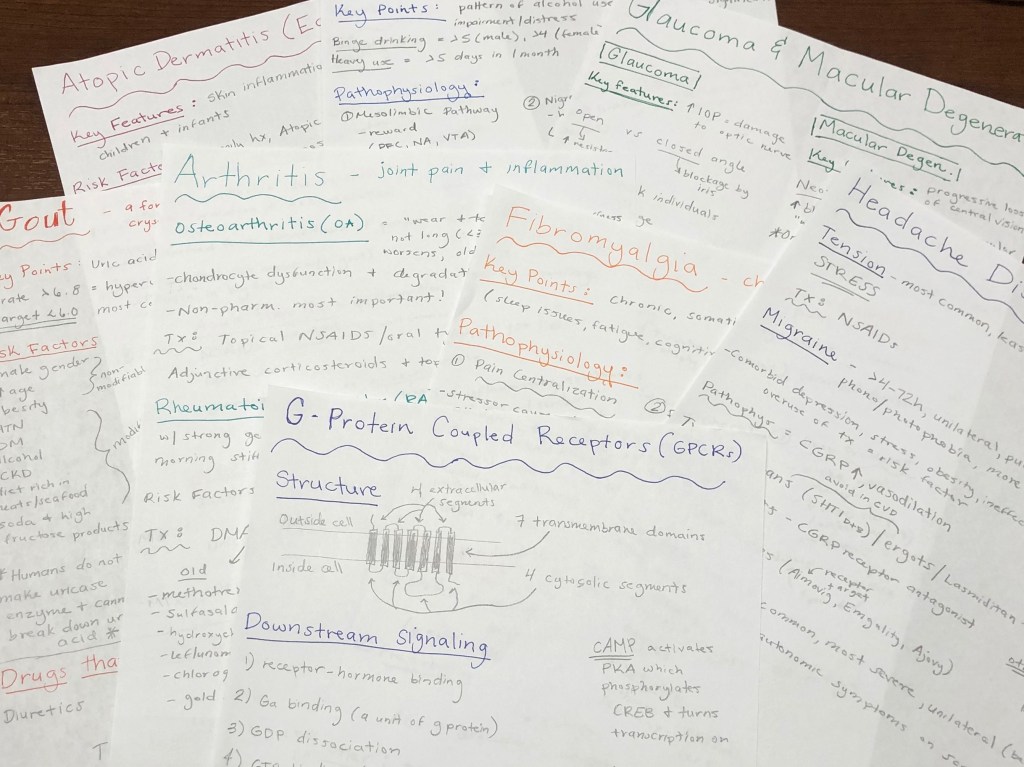 Atopic Dermatitis (Ec
Key Features: skin inflammatio
children + infants
hx, Atopic
Risk Facto
Key Points: pattern of alcohol use
impairment/distress
Binge drinking = >5 (male), >4 (female
Heavy use = >5 days in 1 month
Pathophysiology:
① Mesolimbic Pathway
- reward
(PFC, NA, VTA)
② Nigr
Glaucoma & Macular Degenera
Glaucoma
Key features: ↑ IOP = damage
to optic nerve
open vs closed angle
↑ resist
blockage by
iris
k individuals
Macular Degen.
Key
ures: progressive loss
of central vision
Neo
Gout - a for
crys
ey Points: Uric acid
rate >6.8 = hyperu
target <6.0 most co
sk Factors
male gender
age
non-
modifiabl
besity
HTN
DM
alcohol
CKD
diet rich in
meats/seafood
soda & high
fructose products
modif
* Humans do not
make uricase
enzyme + cann
break down ur
acid *
Drugs tha
Diuretics
Arthritis - joint pain + inflammation
Osteoarthritis (OA) = "wear + te
not long (<3
worsens, old
- chondrocyte dysfunction + degradat
- Non-pharm. most important!
Tx: Topical NSAIDs/oral
Adjunctive corticosteroids + to
Rheumatoi
/RA
w/ strong ge
morning stif
Risk Factors
Tx: DMA
old
- methotre
- sulfasala
- hydroxych
- leflunom
- chlorog
- gold
Fibromyalgia - ch
Key Points: chronic, somati
(sleep issues, fatigue, cognitiv
Pathophysiology:
① Pain Centralization
- stressor cau
②
Headache Di
Tension - most common, leas
STRESS
Tx: NSAIDs
Migraine - >4-72h, unilateral, pul
phono/photophobia, more
- comorbid depression, stress, obesity, ineffec
overuse of tx = risk factor
Pathophys = CGRP↑, vasodilation
avoid in CVD
ans (5HT1B/1D)/ergots/Lasmiditan
- CGRP receptor antagonist
receptor
target
(Aimovig, Emgality, Ajovy)
common, most severe, unilateral
autonomic symptoms on
G-Protein Coupled Receptors (GPCRs)
Structure
4 extracellular
segments
Outside cell
7 transmembrane domains
Inside cell
4 cytosolic segments
Downstream Signaling
1) receptor-hormone binding
2) Ga binding (a unit of g protein)
3) GDP dissociation
4)
CAMP activates
PKA which
phosphorylates
CREB & turns
transcription on